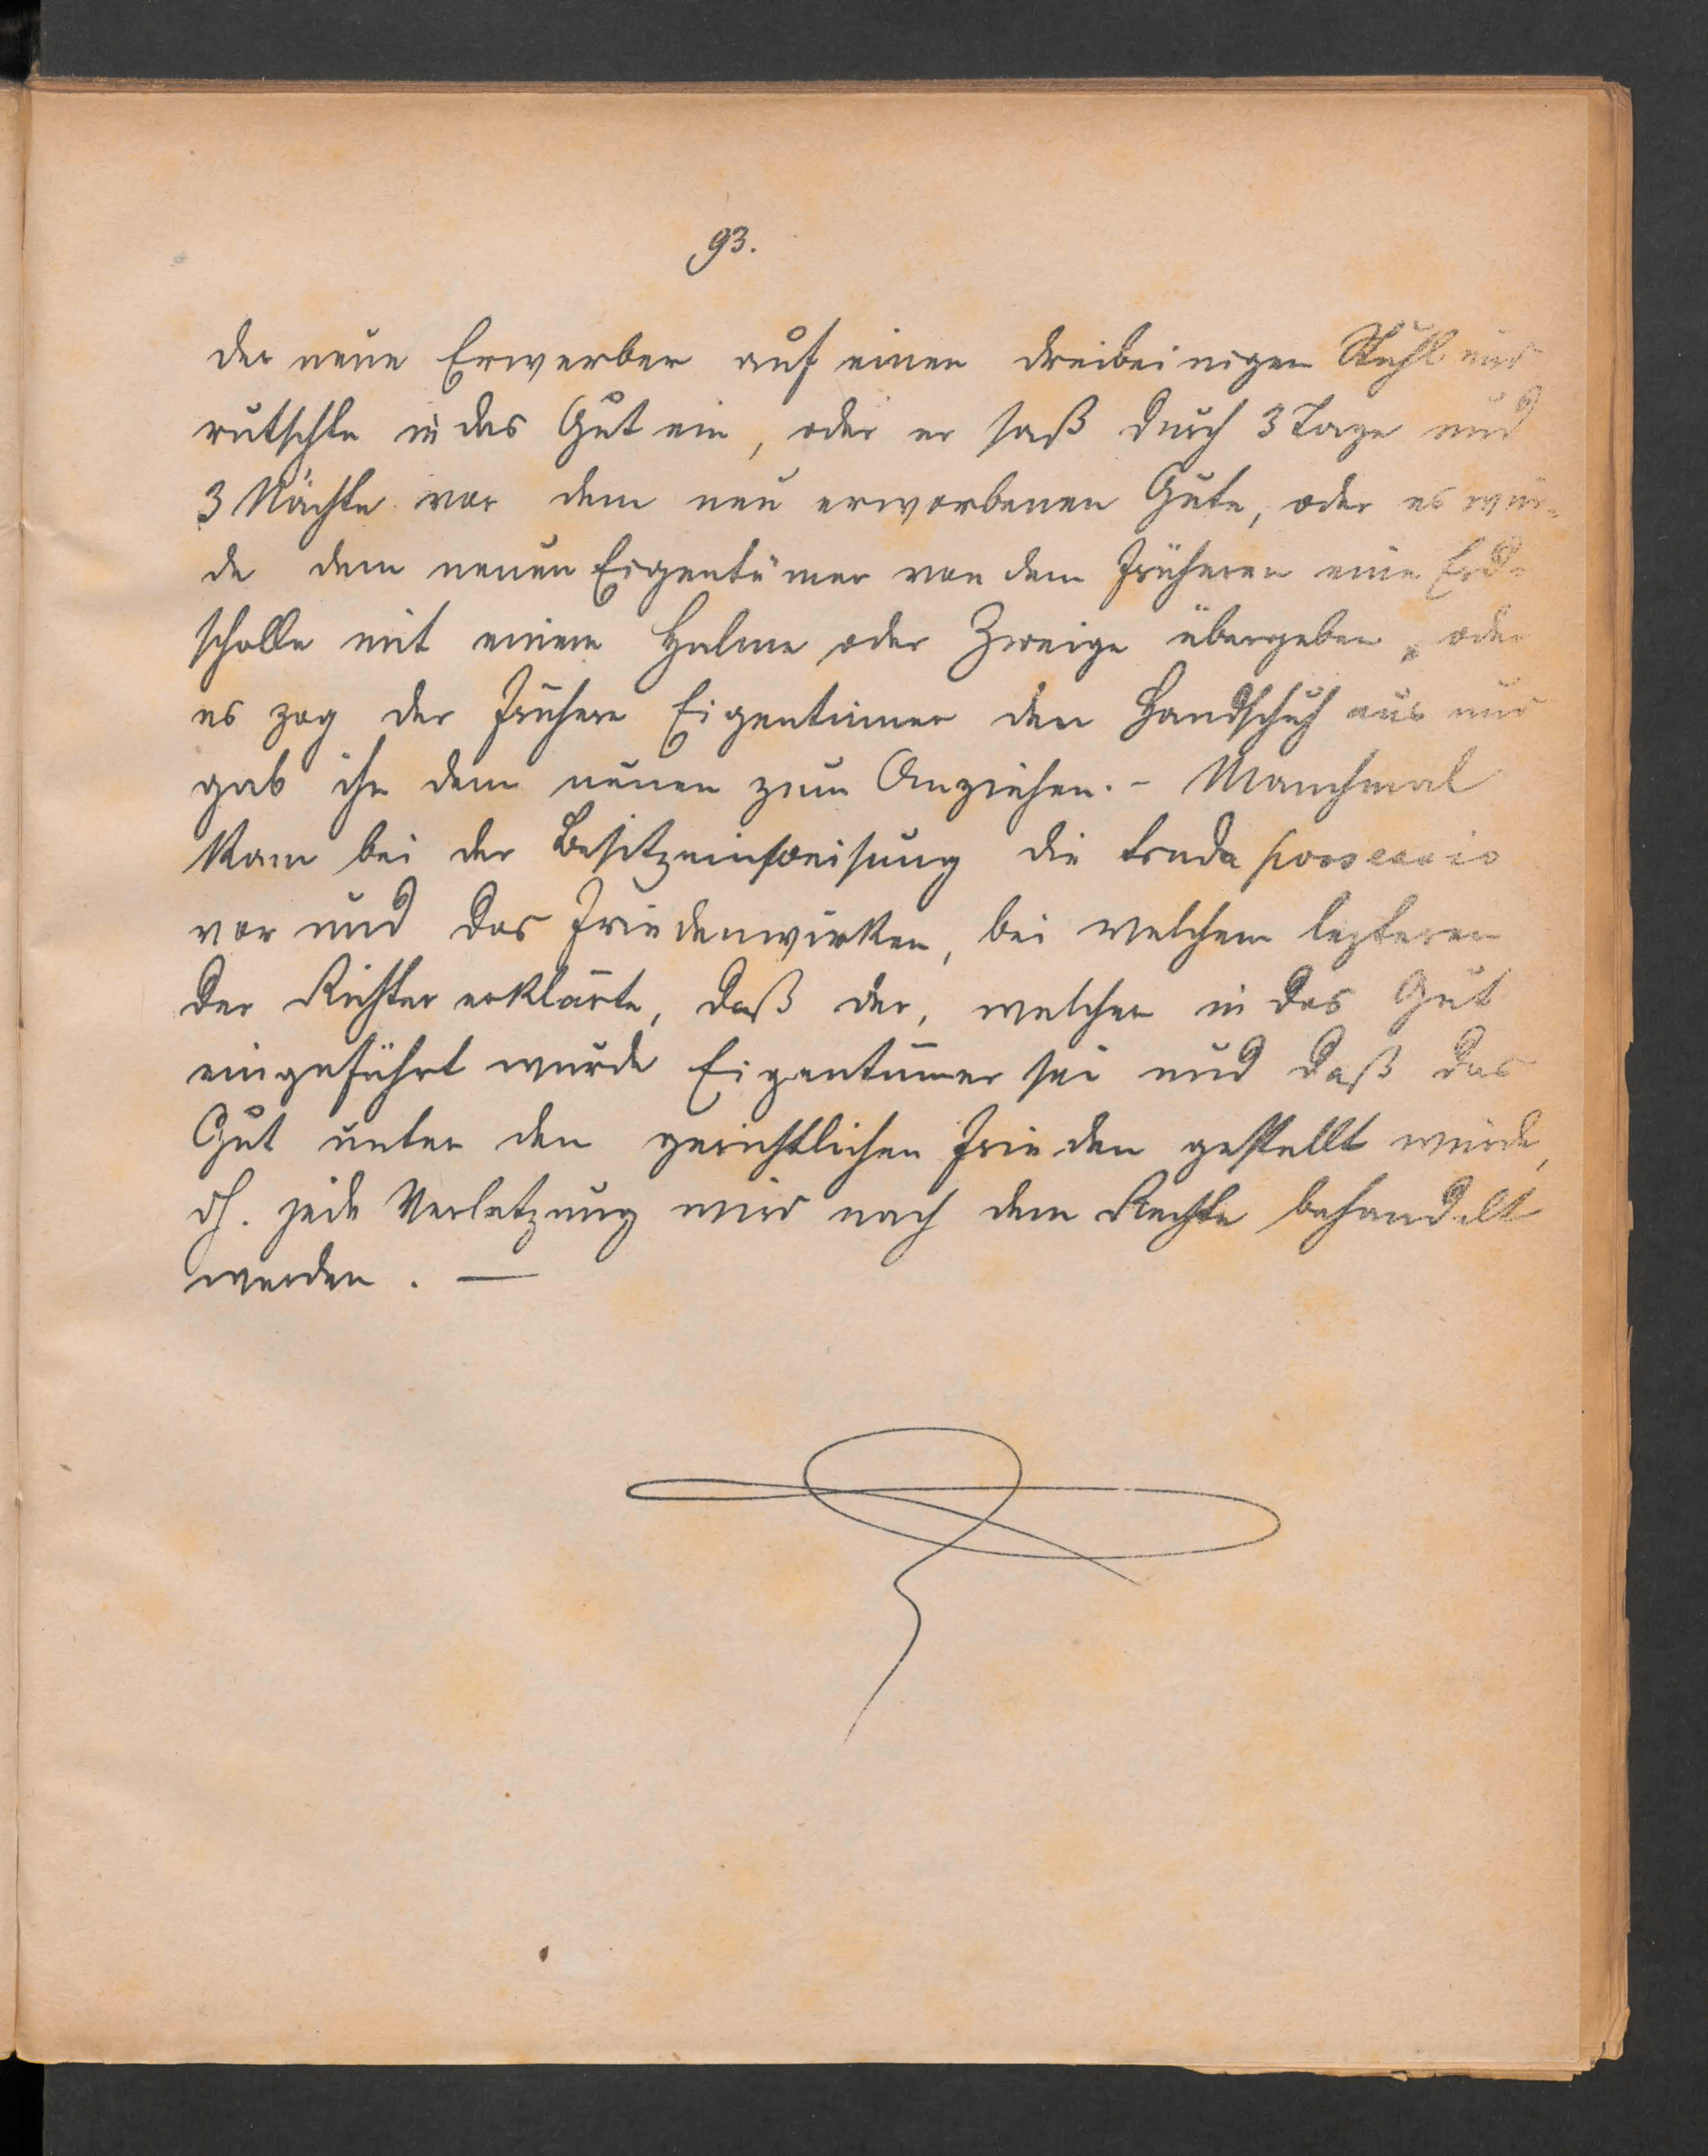 93.
der neue Erwerber auf einen dreibeinigen Stuhl und
rutschte in das Gut ein, oder er saß durch 3 Tage und
3 Nächte vor dem neu erworbenen Gute, oder es wur-
de dem neuen Eigentümer von dem früheren eine Erd-
scholle mit einem Halme oder Zweige übergeben, oder
es zog der frühere Eigentümer den Handschuh aus und
gab ihn dem neuen zum Anziehen. - Manchmal
kam bei der Besitzeinweisung die possessio
vor und das Friedenwirken, bei welchem lezteren
der Richter erklärte, daß der, welcher in das Gut
eingeführt wurde Eigentümer sei und daß das
Gut unter den gerichtlichen Frieden gestellt würde,
dh. jede Verletzung wird nach dem Rechte behandelt
werden. —